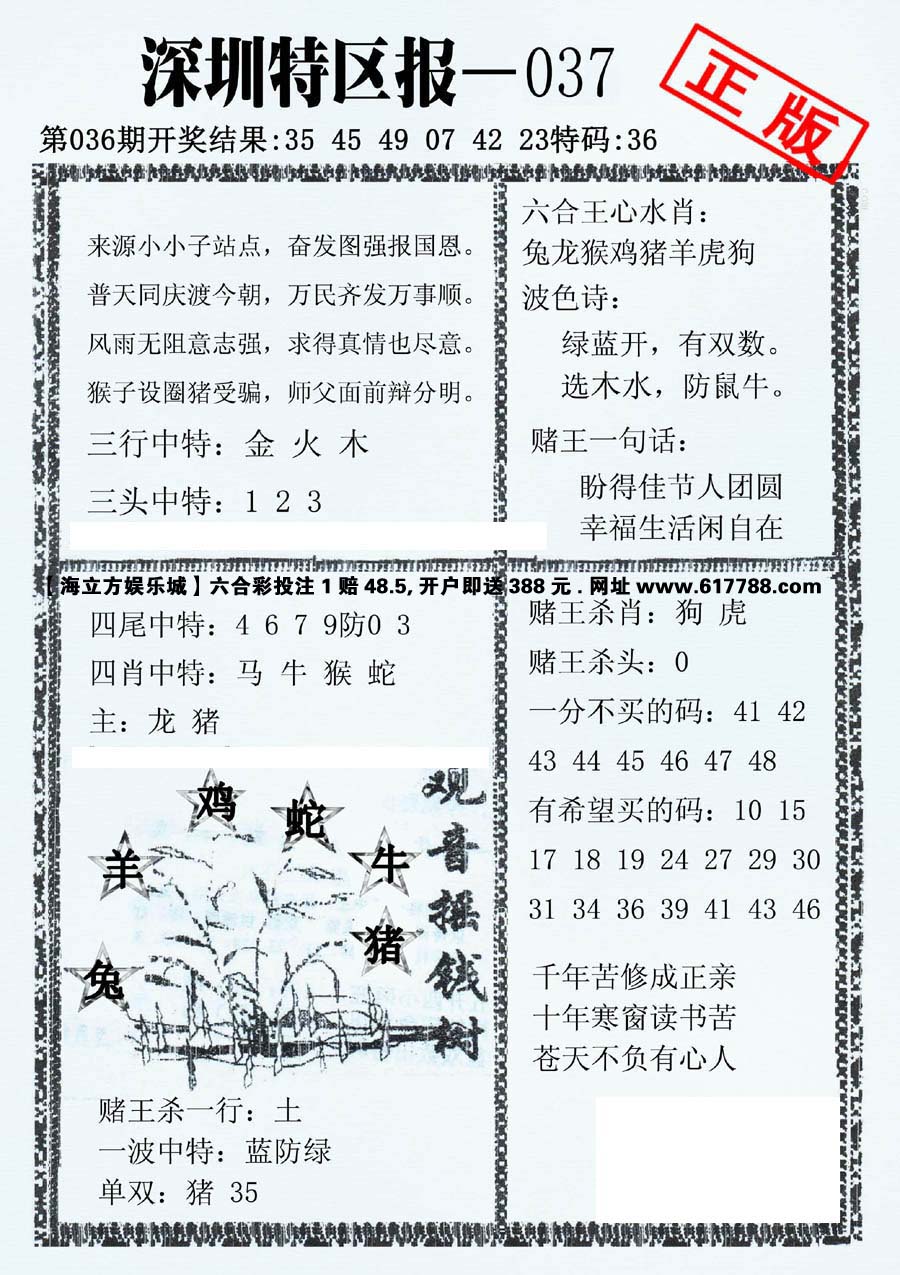 深圳特区报—037
正版
第036期开奖结果:35 45 49 07 42 23特码:36
来源小小子站点，奋发图强报国恩。
普天同庆渡今朝，万民齐发万事顺。
风雨无阻意志强，求得真情也尽意。
猴子设圈猪受骗，师父面前辩分明。
三行中特：金 火 木
三头中特：1 2 3
六合王心水肖：
兔龙猴鸡猪羊虎狗
波色诗：
绿蓝开，有双数。
选木水，防鼠牛。
赌王一句话：
盼得佳节人团圆
幸福生活闲自在
【海立方娱乐城】六合彩投注1赔48.5,开户即送388元.网址www.617788.com
四尾中特：4 6 7 9防0 3
四肖中特：马 牛 猴 蛇
主：龙 猪
鸡
蛇
羊
牛
猪
兔
观音摇钱树
赌王杀一行：土
一波中特：蓝防绿
单双：猪 35
赌王杀肖：狗 虎
赌王杀头：0
一分不买的码：41 42
43 44 45 46 47 48
有希望买的码：10 15
17 18 19 24 27 29 30
31 34 36 39 41 43 46
千年苦修成正亲
十年寒窗读书苦
苍天不负有心人